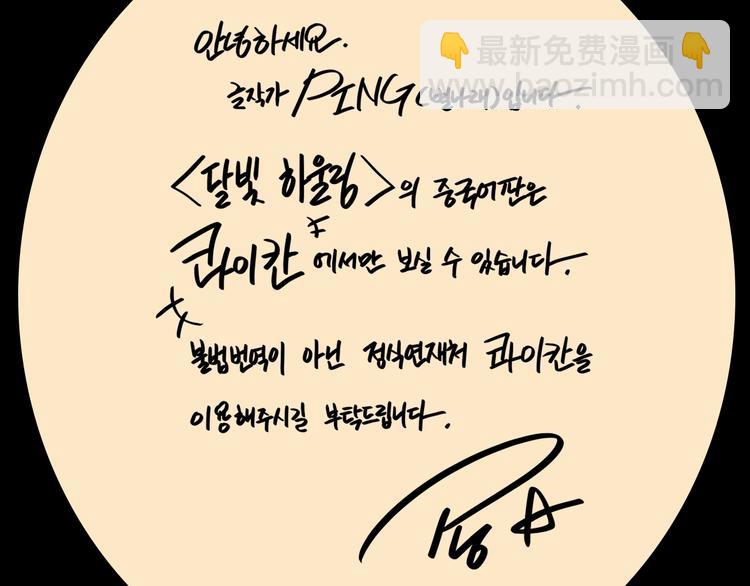 안녕하세요.
👇最新免费漫画👇
www.baozimh.com
글작가 PING(변나래)입니다.
<달빛 하울링>의 중국어판은
콰이칸에서만 보실 수 있습니다.
불법번역이 아닌 정식연재처 콰이칸을
이용해주시길 부탁드립니다.
핑